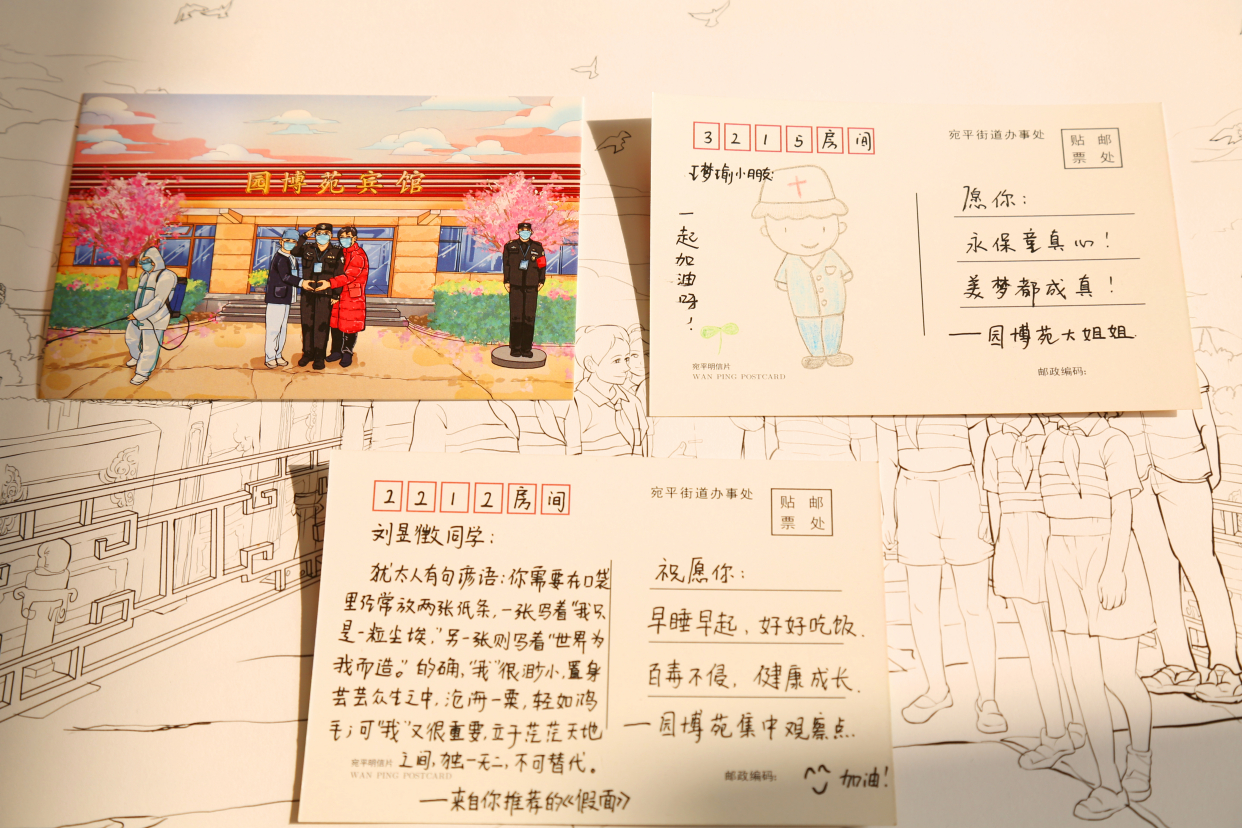 园博苑宾馆
3215房间
宛平街道办事处
贴邮
票处
丁梦瑜小朋友:
一起加油呀!
愿你:
永保童真心!
美梦都成真!
——园博苑大姐姐.
宛平明信片
WAN PING POSTCARD
邮政编码:
2212房间
宛平街道办事处
贴邮
票处
刘昱徵同学:
犹太人有句谚语:你需要在口袋
里经常放两张纸条,一张写着"我只
是一粒尘埃,"另一张则写着"世界为
我而造。"的确,"我"很渺小,置身
芸芸众生之中,沧海一粟,轻如鸿
毛;可"我"又很重要,立于茫茫天地
之间,独一无二,不可替代。
——来自你推荐的《假面》
祝愿你:
早睡早起,好好吃饭.
百毒不侵,健康成长.
——园博苑集中观察点.
宛平明信片
WAN PING POSTCARD
邮政编码:
加油!